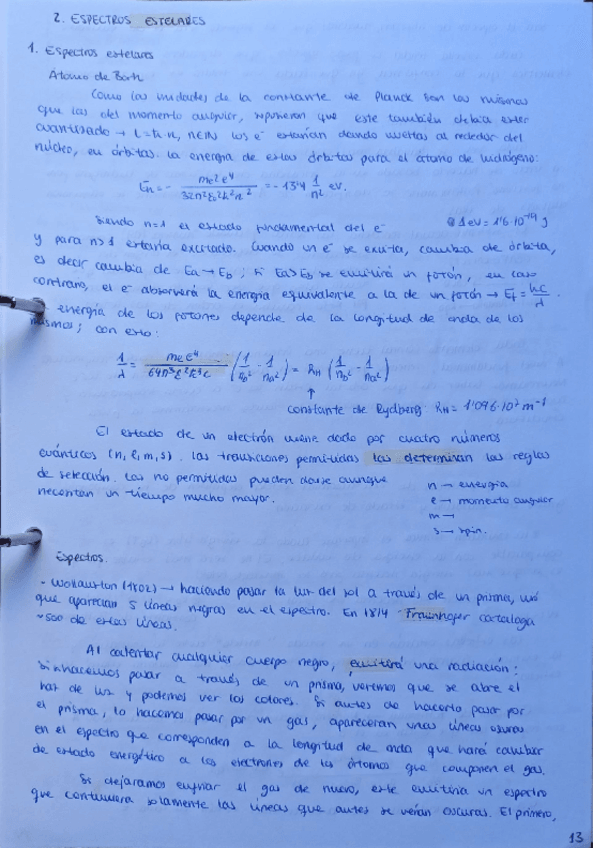 2. ESPECTROS ESTELARES
1. Espectros estelares
Átomo de Bohr
Como las unidades de la constante de Planck son las mismas
que las del momento angular, supusieron que este también debía estar
cuantizado → L = ħ·n, n∈ℕ los e⁻ estarían dando vueltas al rededor del
núcleo, en órbitas. La energía de estas órbitas para el átomo de hidrógeno:
= -13'4 1/n² eV.
Siendo n=1 el estado fundamental del e⁻
1eV = 1'6·10⁻¹⁹ J
y para n>1 estaría excitado. Cuando un e⁻ se excita, cambia de órbita,
es decir cambia de Ea → Eb; si Ea>Eb se emitirá un fotón, en caso
contrario, el e⁻ absorverá la energía equivalente a la de un fotón → Ef = hc/λ.
energía de los fotones depende de la longitud de onda de los
mismos; con esto:
= R_H (1/nb² - 1/na²)
↑
constante de Rydberg R_H = 1'096·10⁷ m⁻¹
El estado de un electrón viene dado por cuatro números
cuánticos (n, l, m, s). Las transiciones permitidas las determinan las reglas
de selección. Las no permitidas pueden darse aunque
necesitan un tiempo mucho mayor.
n → energía
l → momento angular
m →
s → spin.
Espectros.
- Wollaston (1802) → haciendo pasar la luz del sol a través de un prisma, vió
que aparecían 5 líneas negras en el espectro. En 1814 Fraunhofer cataloga
~500 de estas líneas.
Al calentar cualquier cuerpo negro, emitirá una radiación:
Si hacemos pasar a través de un prisma, veremos que se abre el
haz de luz y podemos ver los colores. Si antes de hacerlo pasar por
el prisma, lo hacemos pasar por un gas, aparecerán unas líneas osuras
en el espectro que corresponden a la longitud de onda que hará cambiar
de estado energético a los electrones de los átomos que componen el gas.
Si dejáramos enfriar el gas de nuevo, este emitiría un espectro
que contuviera solamente las líneas que antes se veían oscuras. El primero,
13